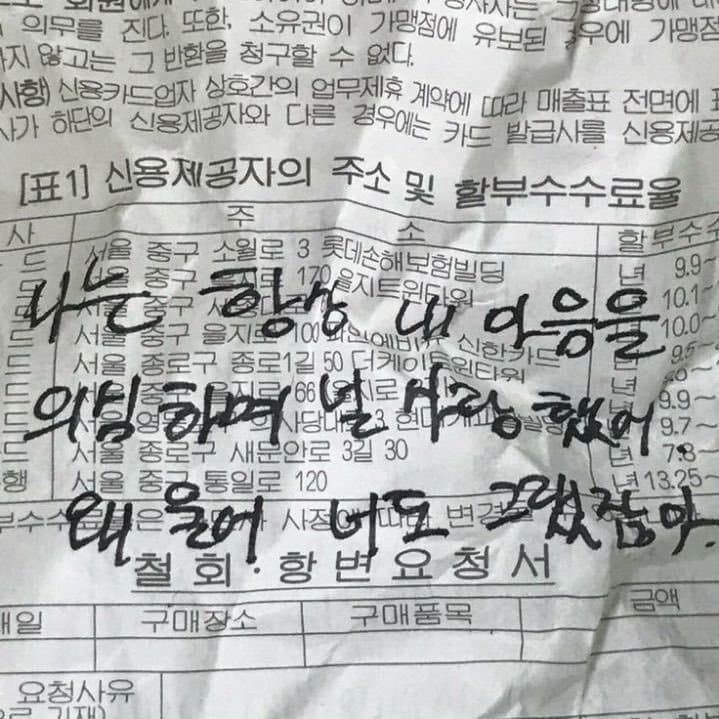 회원에게
의무를 진다. 또한, 소유권이 가맹점에 유보된 경우에 가맹점
하지 않고는 그 반환을 청구할 수 없다.
사항) 신용카드업자 상호간의 업무제휴 계약에 따라 매출표 전면에
사가 하단의 신용제공자와 다른 경우에는 카드 발급사를 신용제공
[표1] 신용제공자의 주소 및 할부수수료율
사 주 소 할부수수
드 서울 중구 소월로 3 롯데손해보험빌딩 년 9.9~
서울 중구 170 을지트윈타워 년 10.1~
나는 항상 내 마음을
서울 중구 을지로 100 신한카드 10.0~
드 서울 종로구 종로1길 50 더케이트윈타워 9.5~
드 66 년 9.9~
의심하며 널 사랑했어.
드 서울 3 년 9.7~
드 서울 종로구 새문안로 3길 30 년 7.8~
행 서울 중구 통일로 120 년 13.25~
왜 울어 너도 그랬잖아.
부수수 은 사정에 따 변경
철회·항변요청서
매일 구매장소 구매품목 금액
요청사유
으로 기재)